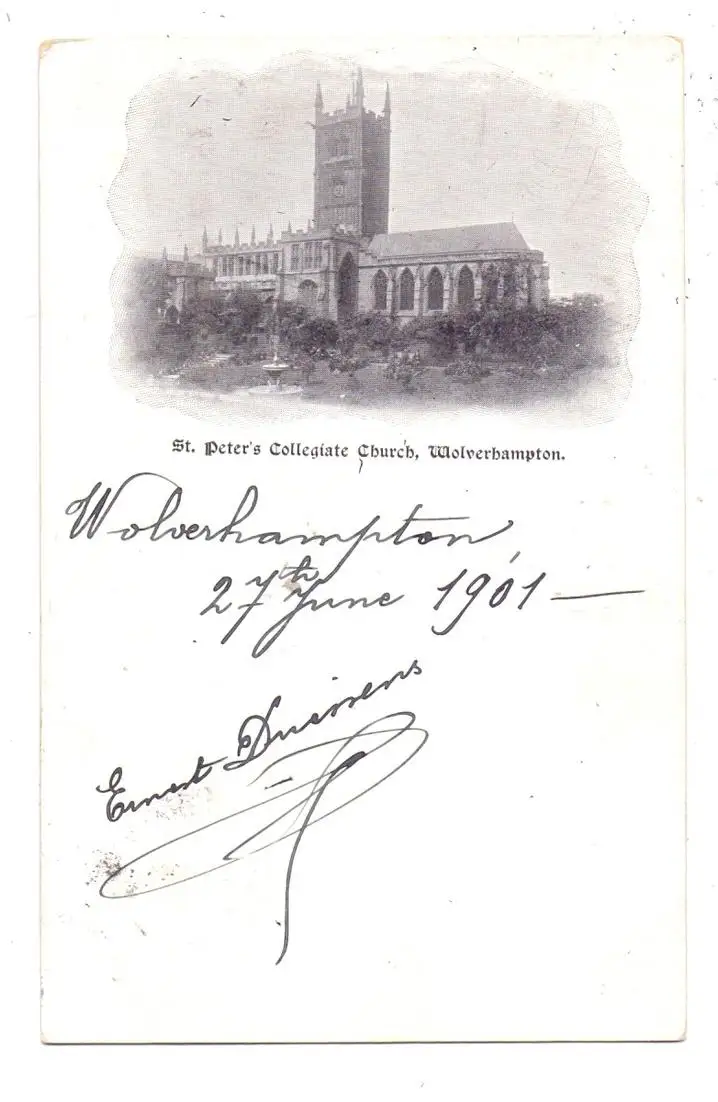 St. Peter's Collegiate Church, Wolverhampton.
Wolverhampton,
27th June 1901 —
Ernest